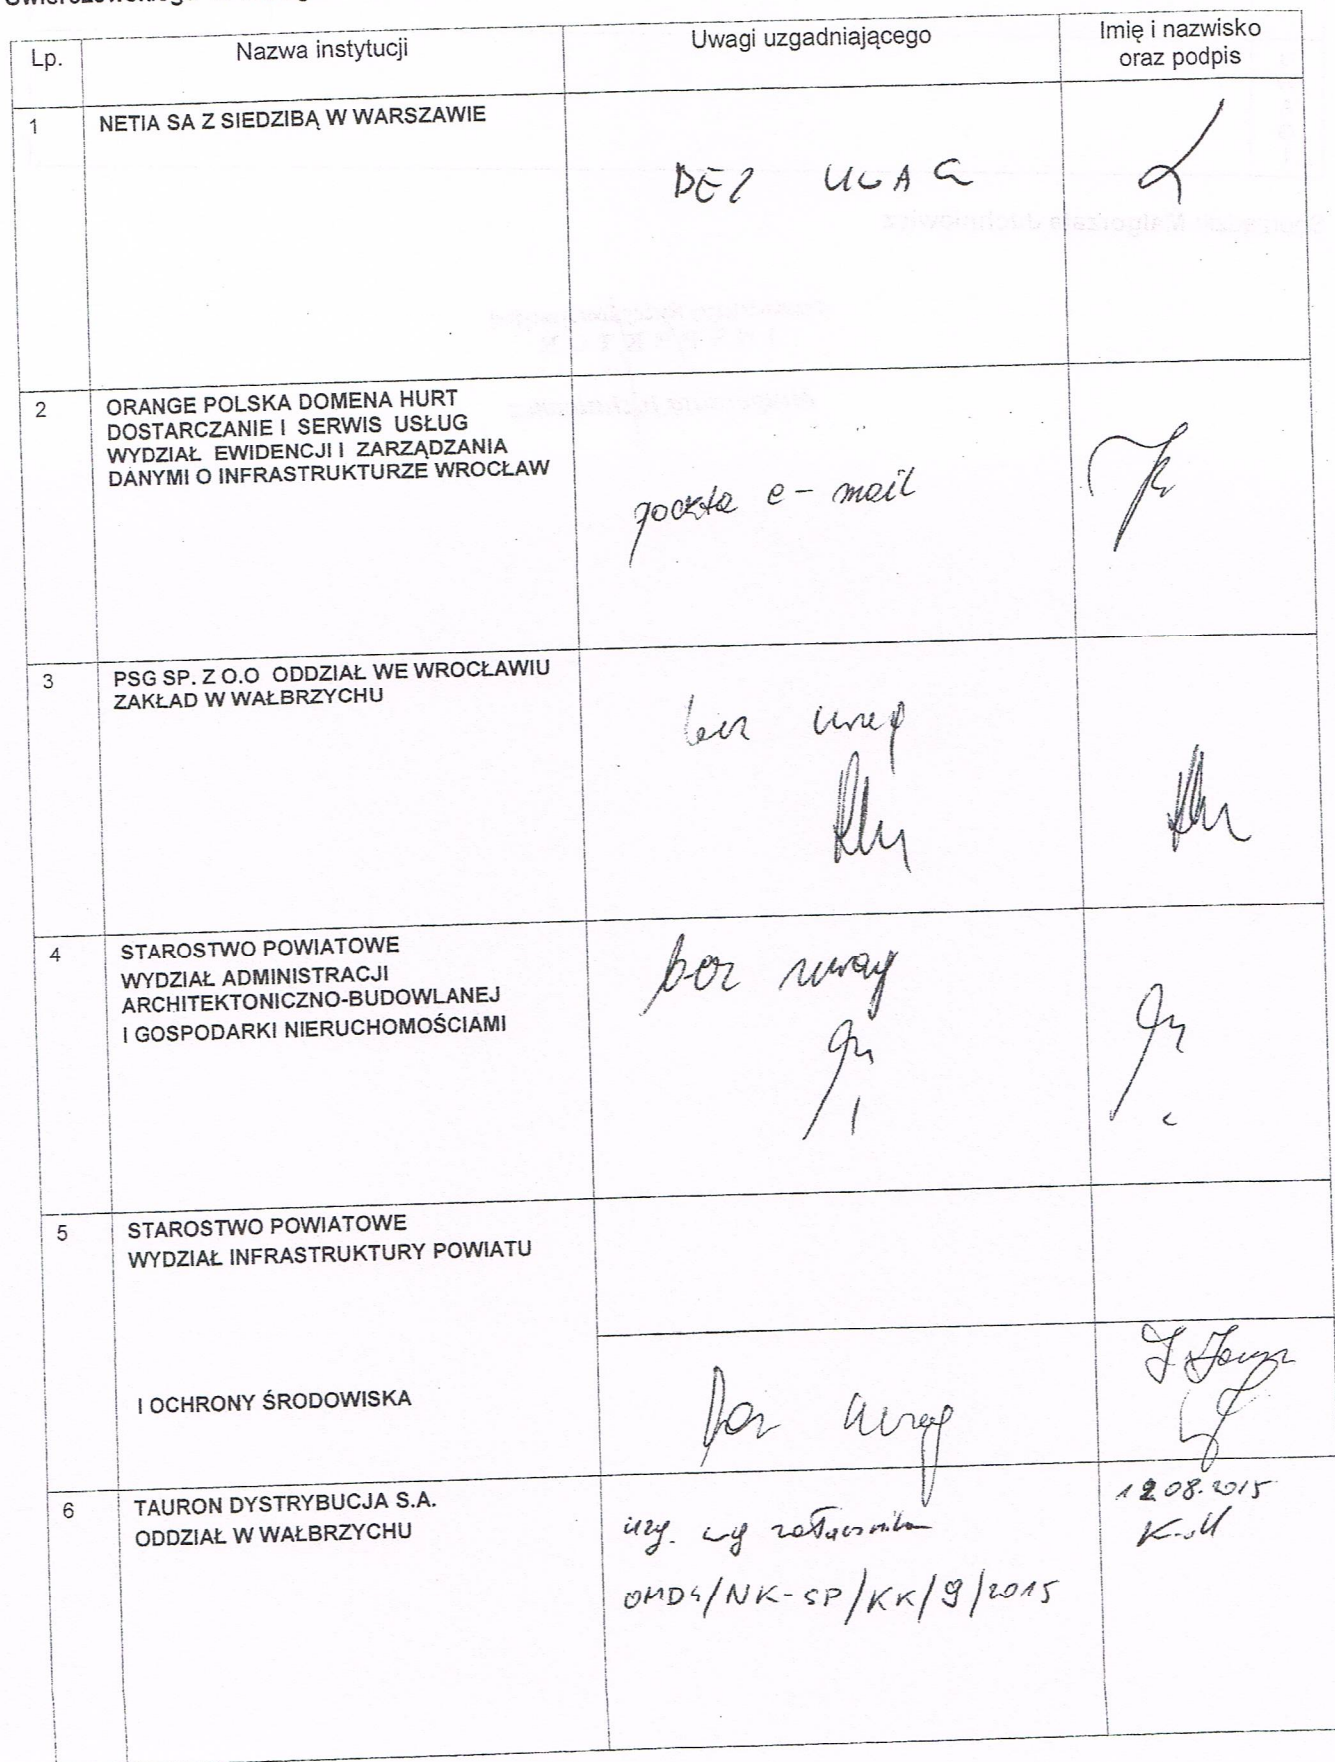 Lp.
Nazwa instytucji
Uwagi uzgadniającego
Imię i nazwisko
oraz podpis
1
NETIA SA Z SIEDZIBĄ W WARSZAWIE
BEZ UWAG
2
ORANGE POLSKA DOMENA HURT
DOSTARCZANIE I SERWIS USŁUG
WYDZIAŁ EWIDENCJI I ZARZĄDZANIA
DANYMI O INFRASTRUKTURZE WROCŁAW
poczta e-mail
3
PSG SP. Z O.O ODDZIAŁ WE WROCŁAWIU
ZAKŁAD W WAŁBRZYCHU
bez uwag
4
STAROSTWO POWIATOWE
WYDZIAŁ ADMINISTRACJI
ARCHITEKTONICZNO-BUDOWLANEJ
I GOSPODARKI NIERUCHOMOŚCIAMI
bez uwag
5
STAROSTWO POWIATOWE
WYDZIAŁ INFRASTRUKTURY POWIATU
I OCHRONY ŚRODOWISKA
bez uwag
6
TAURON DYSTRYBUCJA S.A.
ODDZIAŁ W WAŁBRZYCHU
uzg. wg załącznika
OMD4/NK-SP/KK/9/2015
12.08.2015